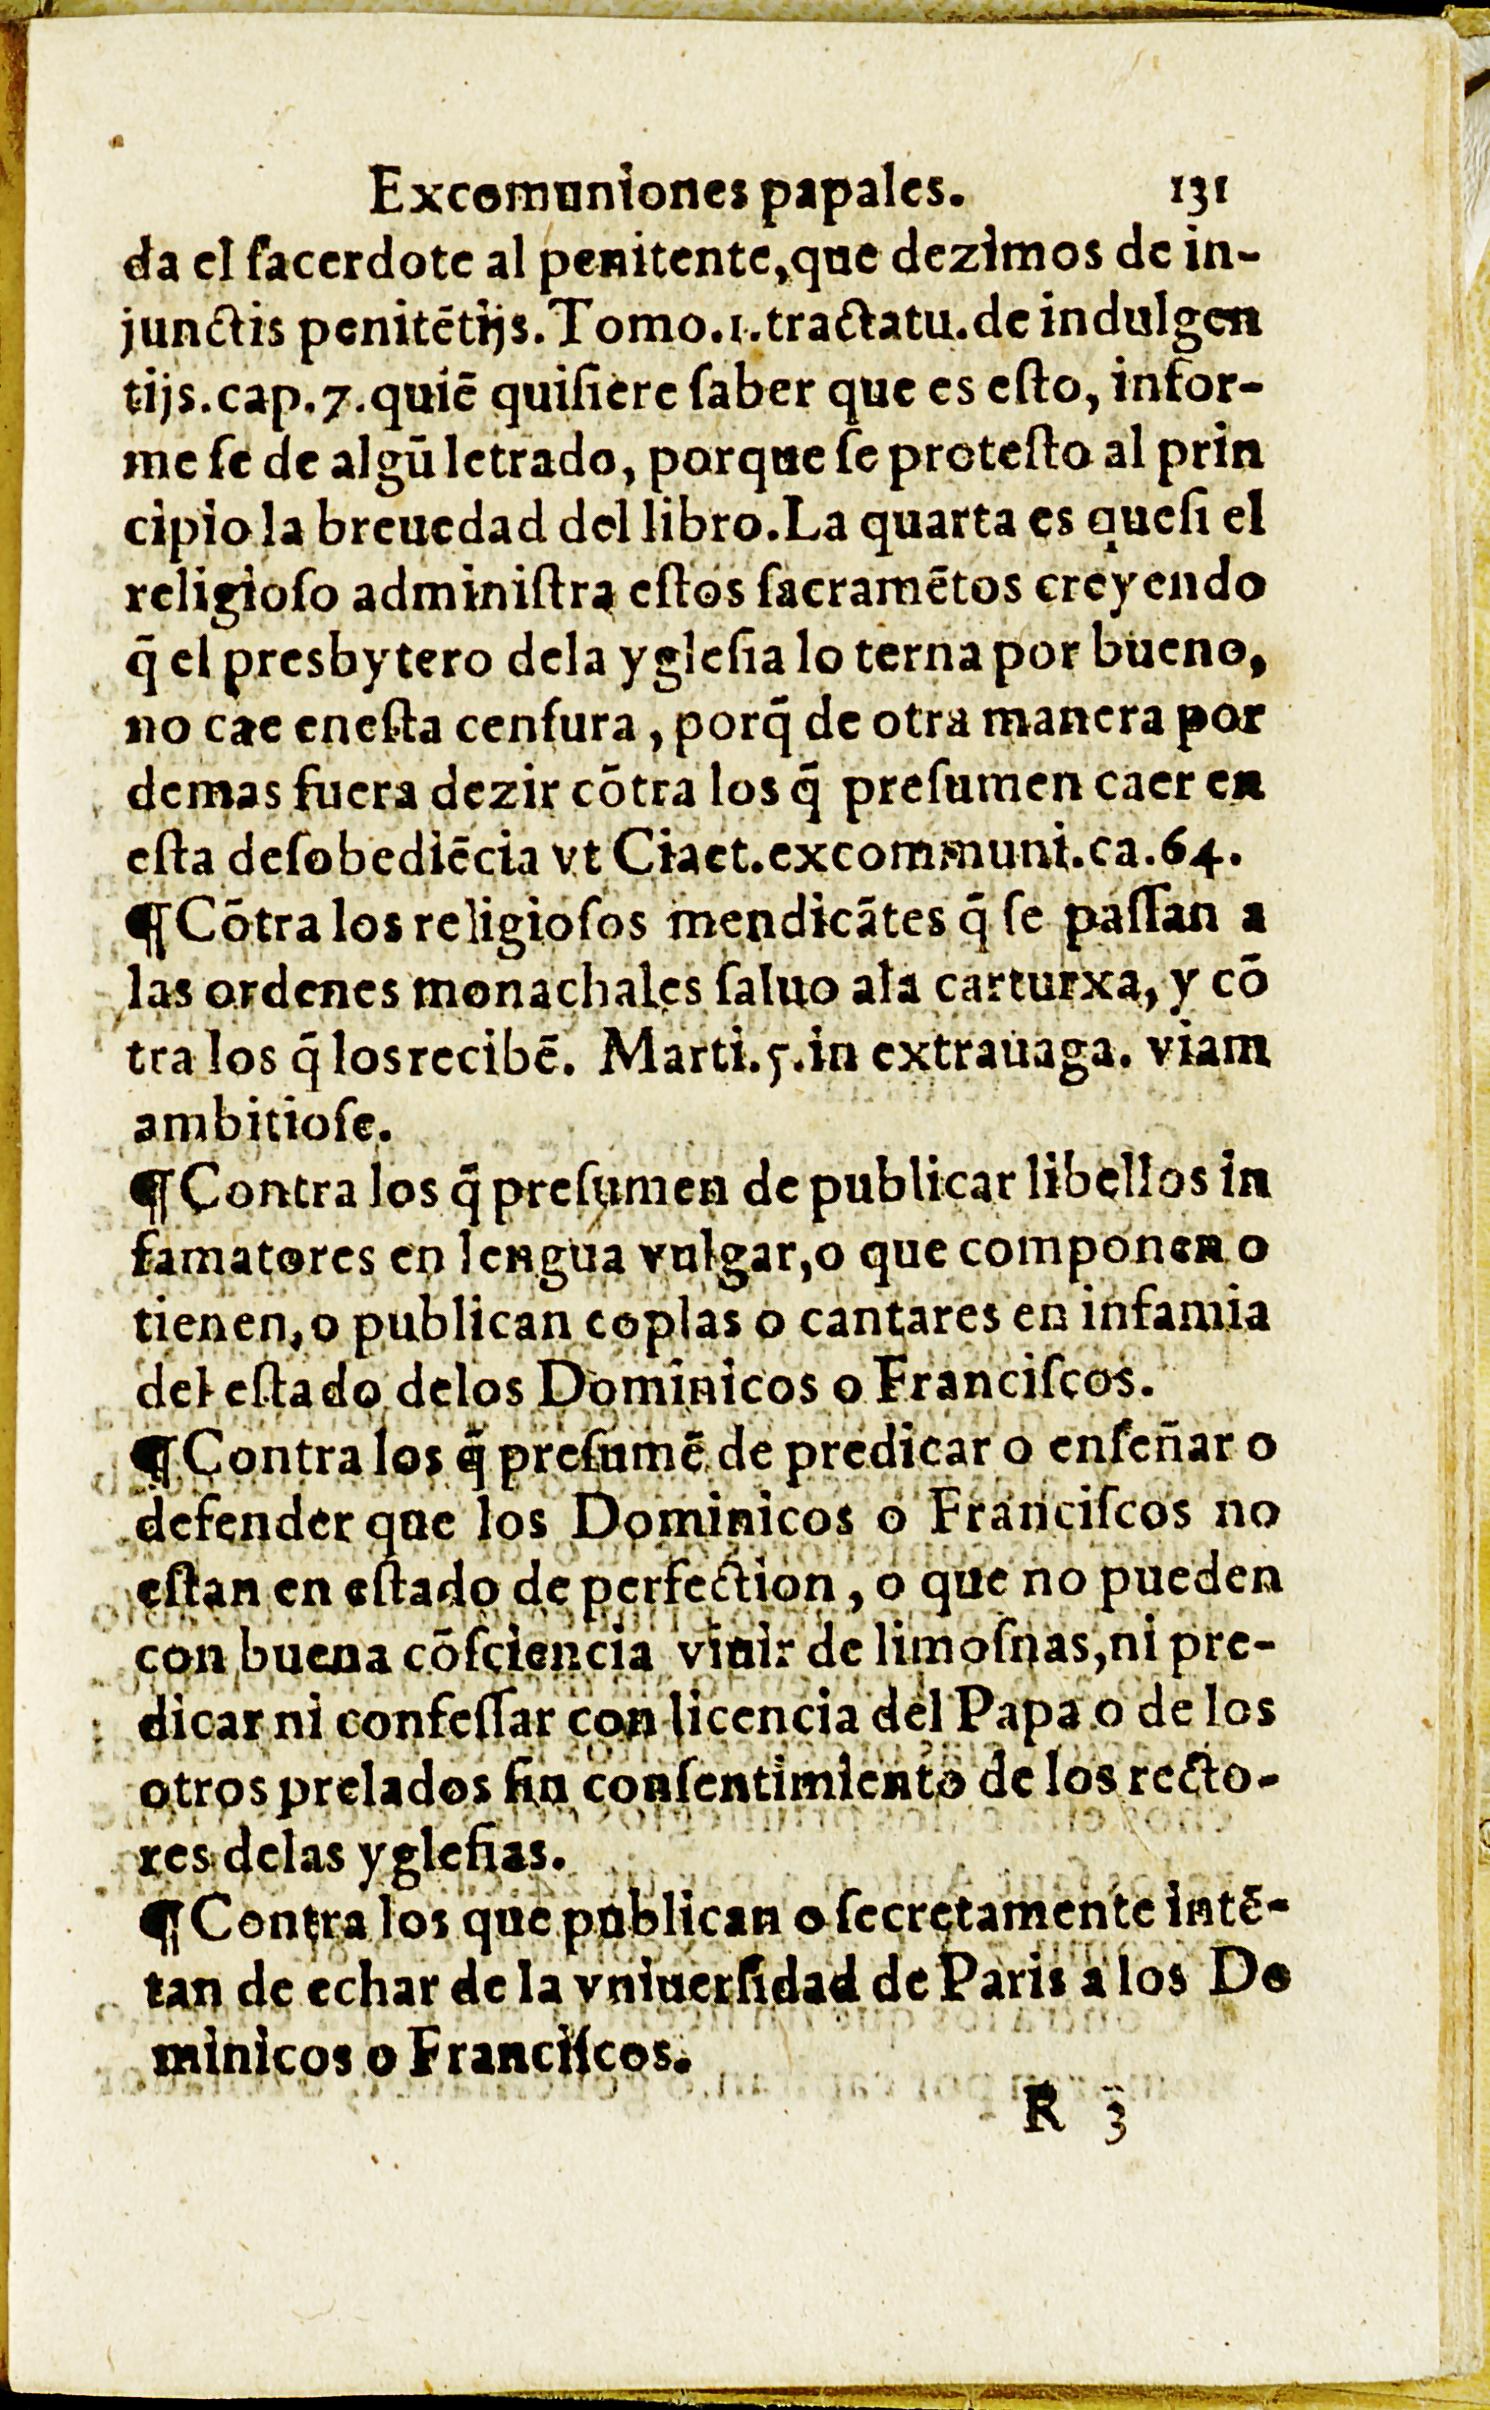 Excomuniones papales. 131
da el ſacerdote al penitente, que dezimos de in-
junctis penitētijs. Tomo.1.tractatu.de indulgen
tijs.cap.7.quiē quiſiere ſaber que es eſto, infor-
me ſe de algū letrado, porque ſe proteſto al prin
cipio la breuedad del libro. La quarta es queſi el
religioſo adminiſtra eſtos ſacramētos creyendo
q̄ el presbytero dela ygleſia lo terna por bueno,
no cae eneſta cenſura, porq̄ de otra manera por
demas fuera dezir cōtra los q̄ preſumen caer en
eſta deſobediēcia vt Ciaet.excommuni.ca.64.
¶ Cōtra los religioſos mendicātes q̄ ſe paſſan a
las ordenes monachales ſaluo ala carturxa, y cō
tra los q̄ los recibē. Marti.5.in extrauaga. viam
ambitioſe.
¶ Contra los q̄ preſumen de publicar libellos in
famatores en lengua vulgar, o que componen o
tienen, o publican coplas o cantares en infamia
del eſtado delos Dominicos o Franciſcos.
¶ Contra los q̄ preſumē de predicar o enſeñar o
defender que los Dominicos o Franciſcos no
eſtan en eſtado de perfection, o que no pueden
con buena cōſciencia viuir de limoſnas, ni pre-
dicar ni confeſſar con licencia del Papa o de los
otros prelados ſin conſentimiento de los recto-
res delas ygleſias.
¶ Contra los que publican o ſecretamente intē-
tan de echar de la vniuerſidad de Paris a los Do
minicos o Franciſcos.
R 3